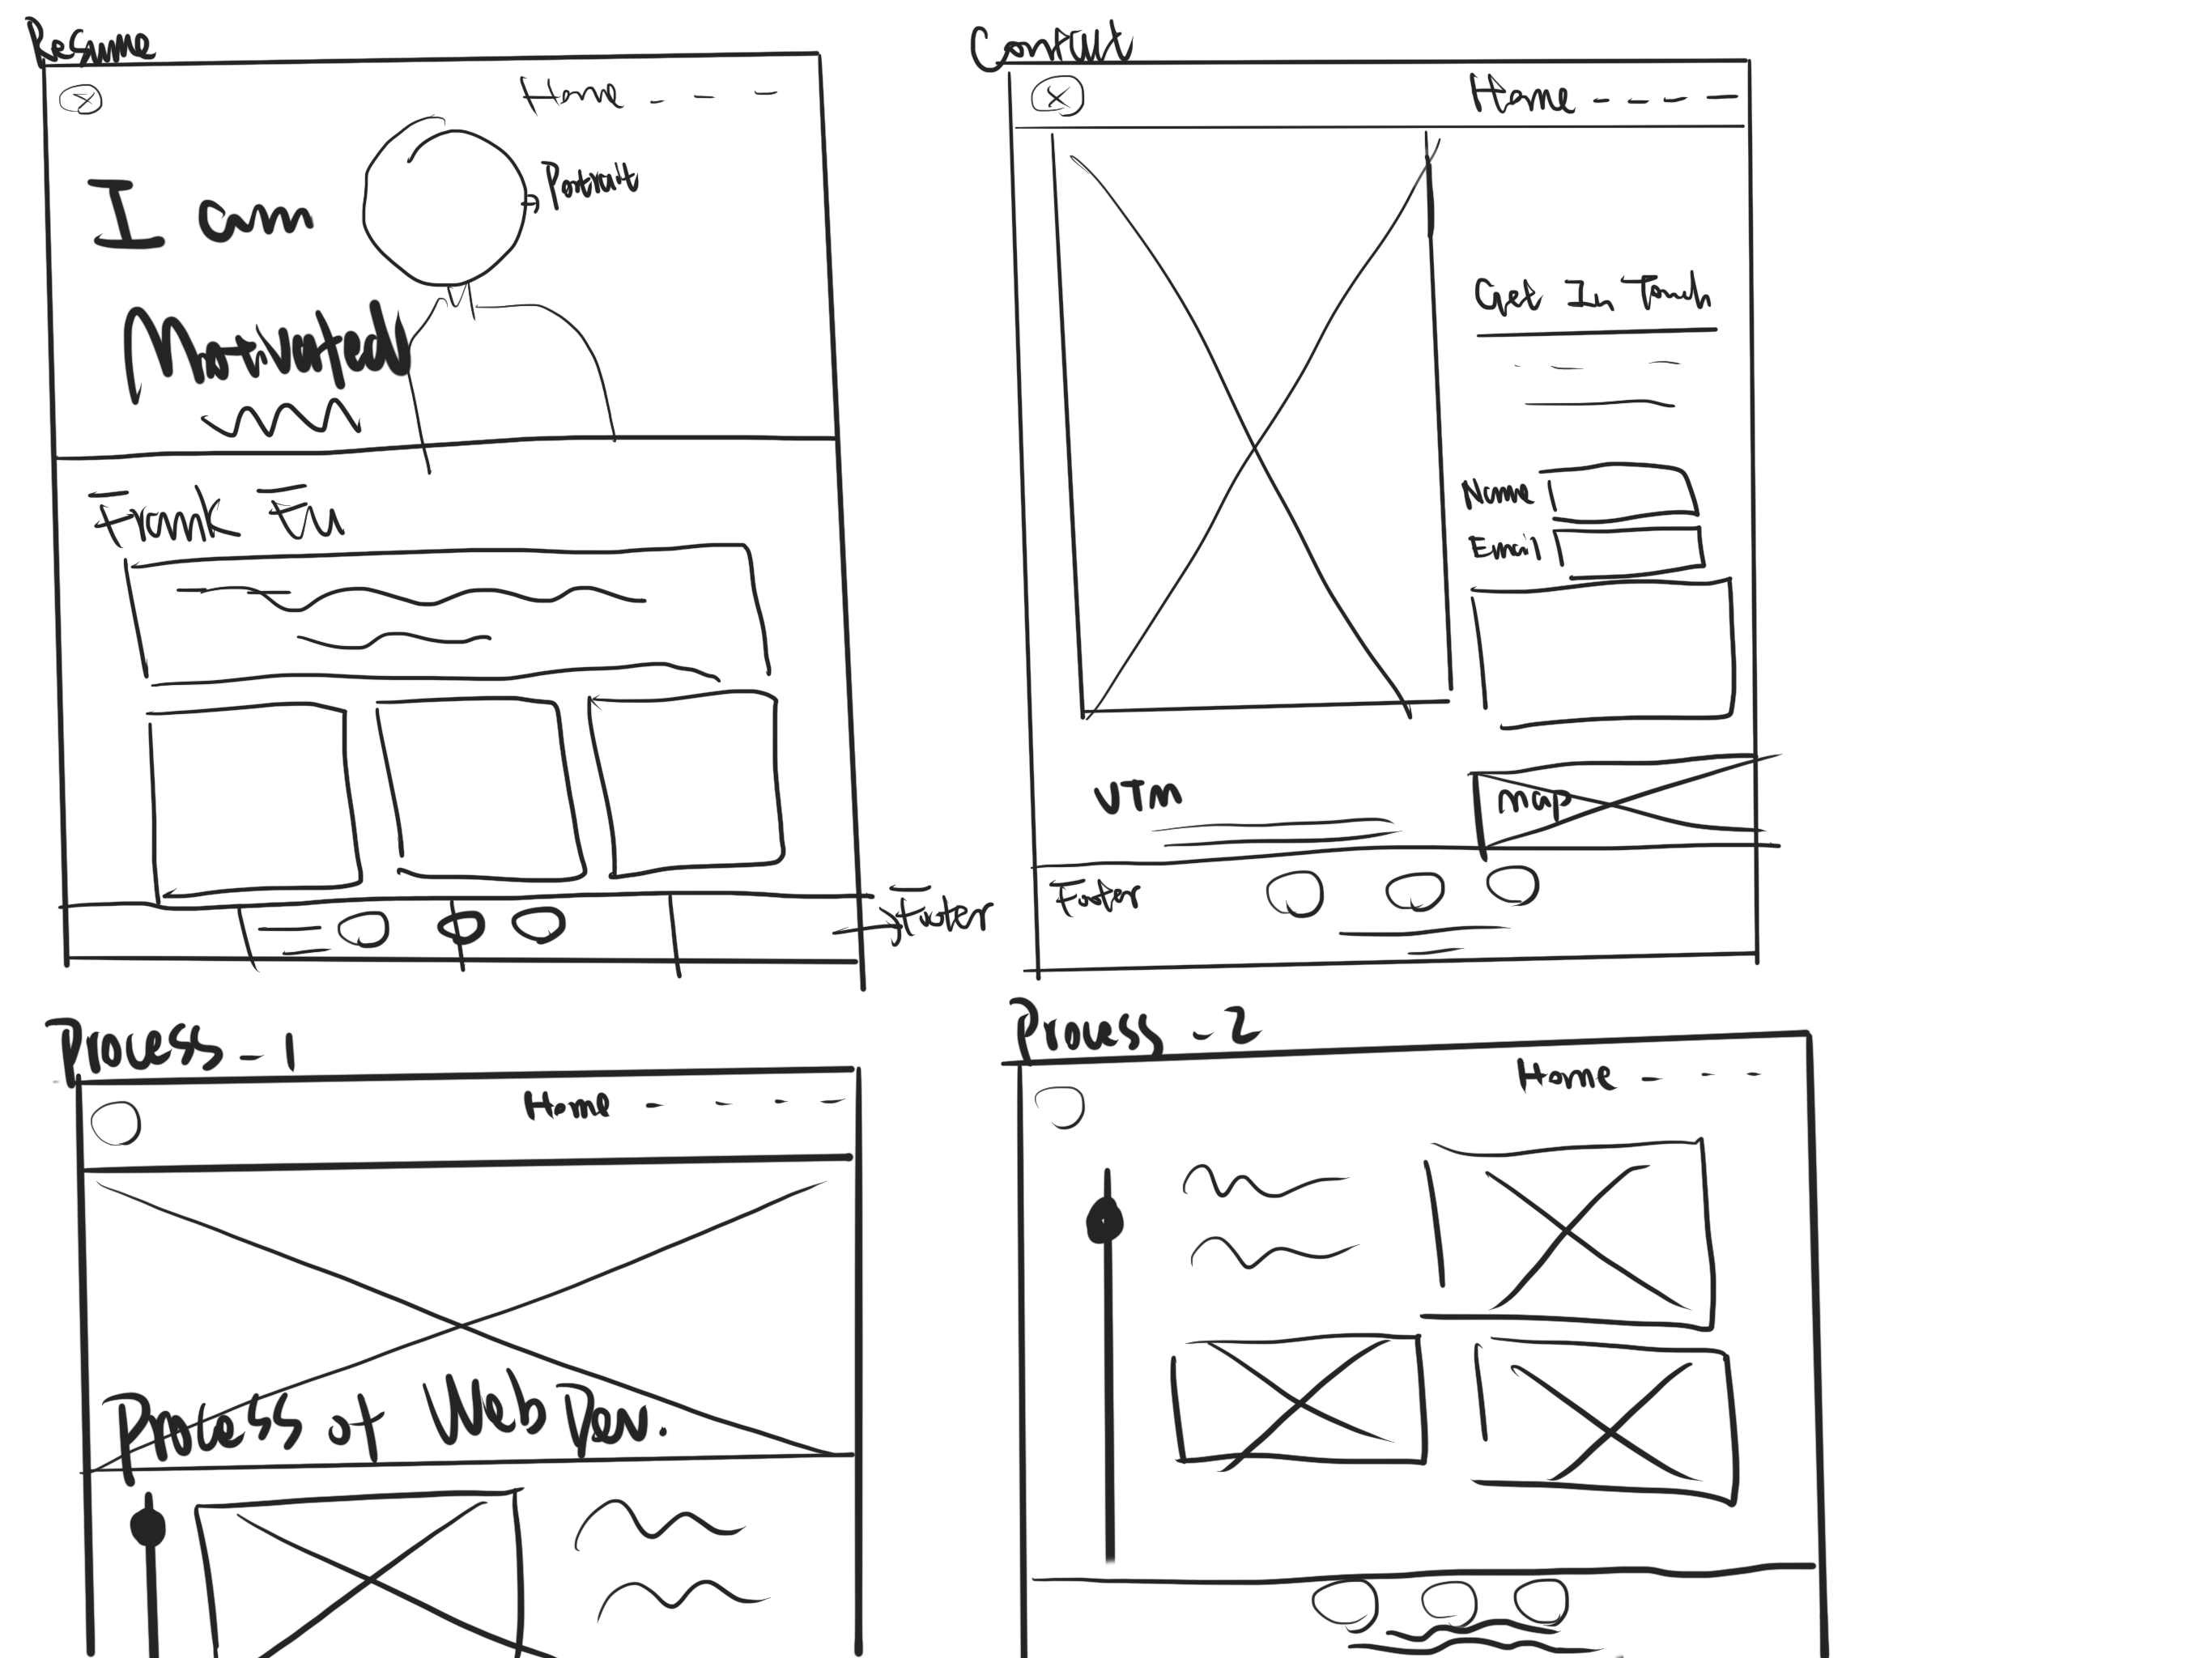 Resume
Home
Portrait
I am
Motivated
Frank Fu
Footer
Contact
Home
Get In Touch
Name
Email
UTM
map
Footer
Process - 1
Home
Process of Web Dev.
Process - 2
Home